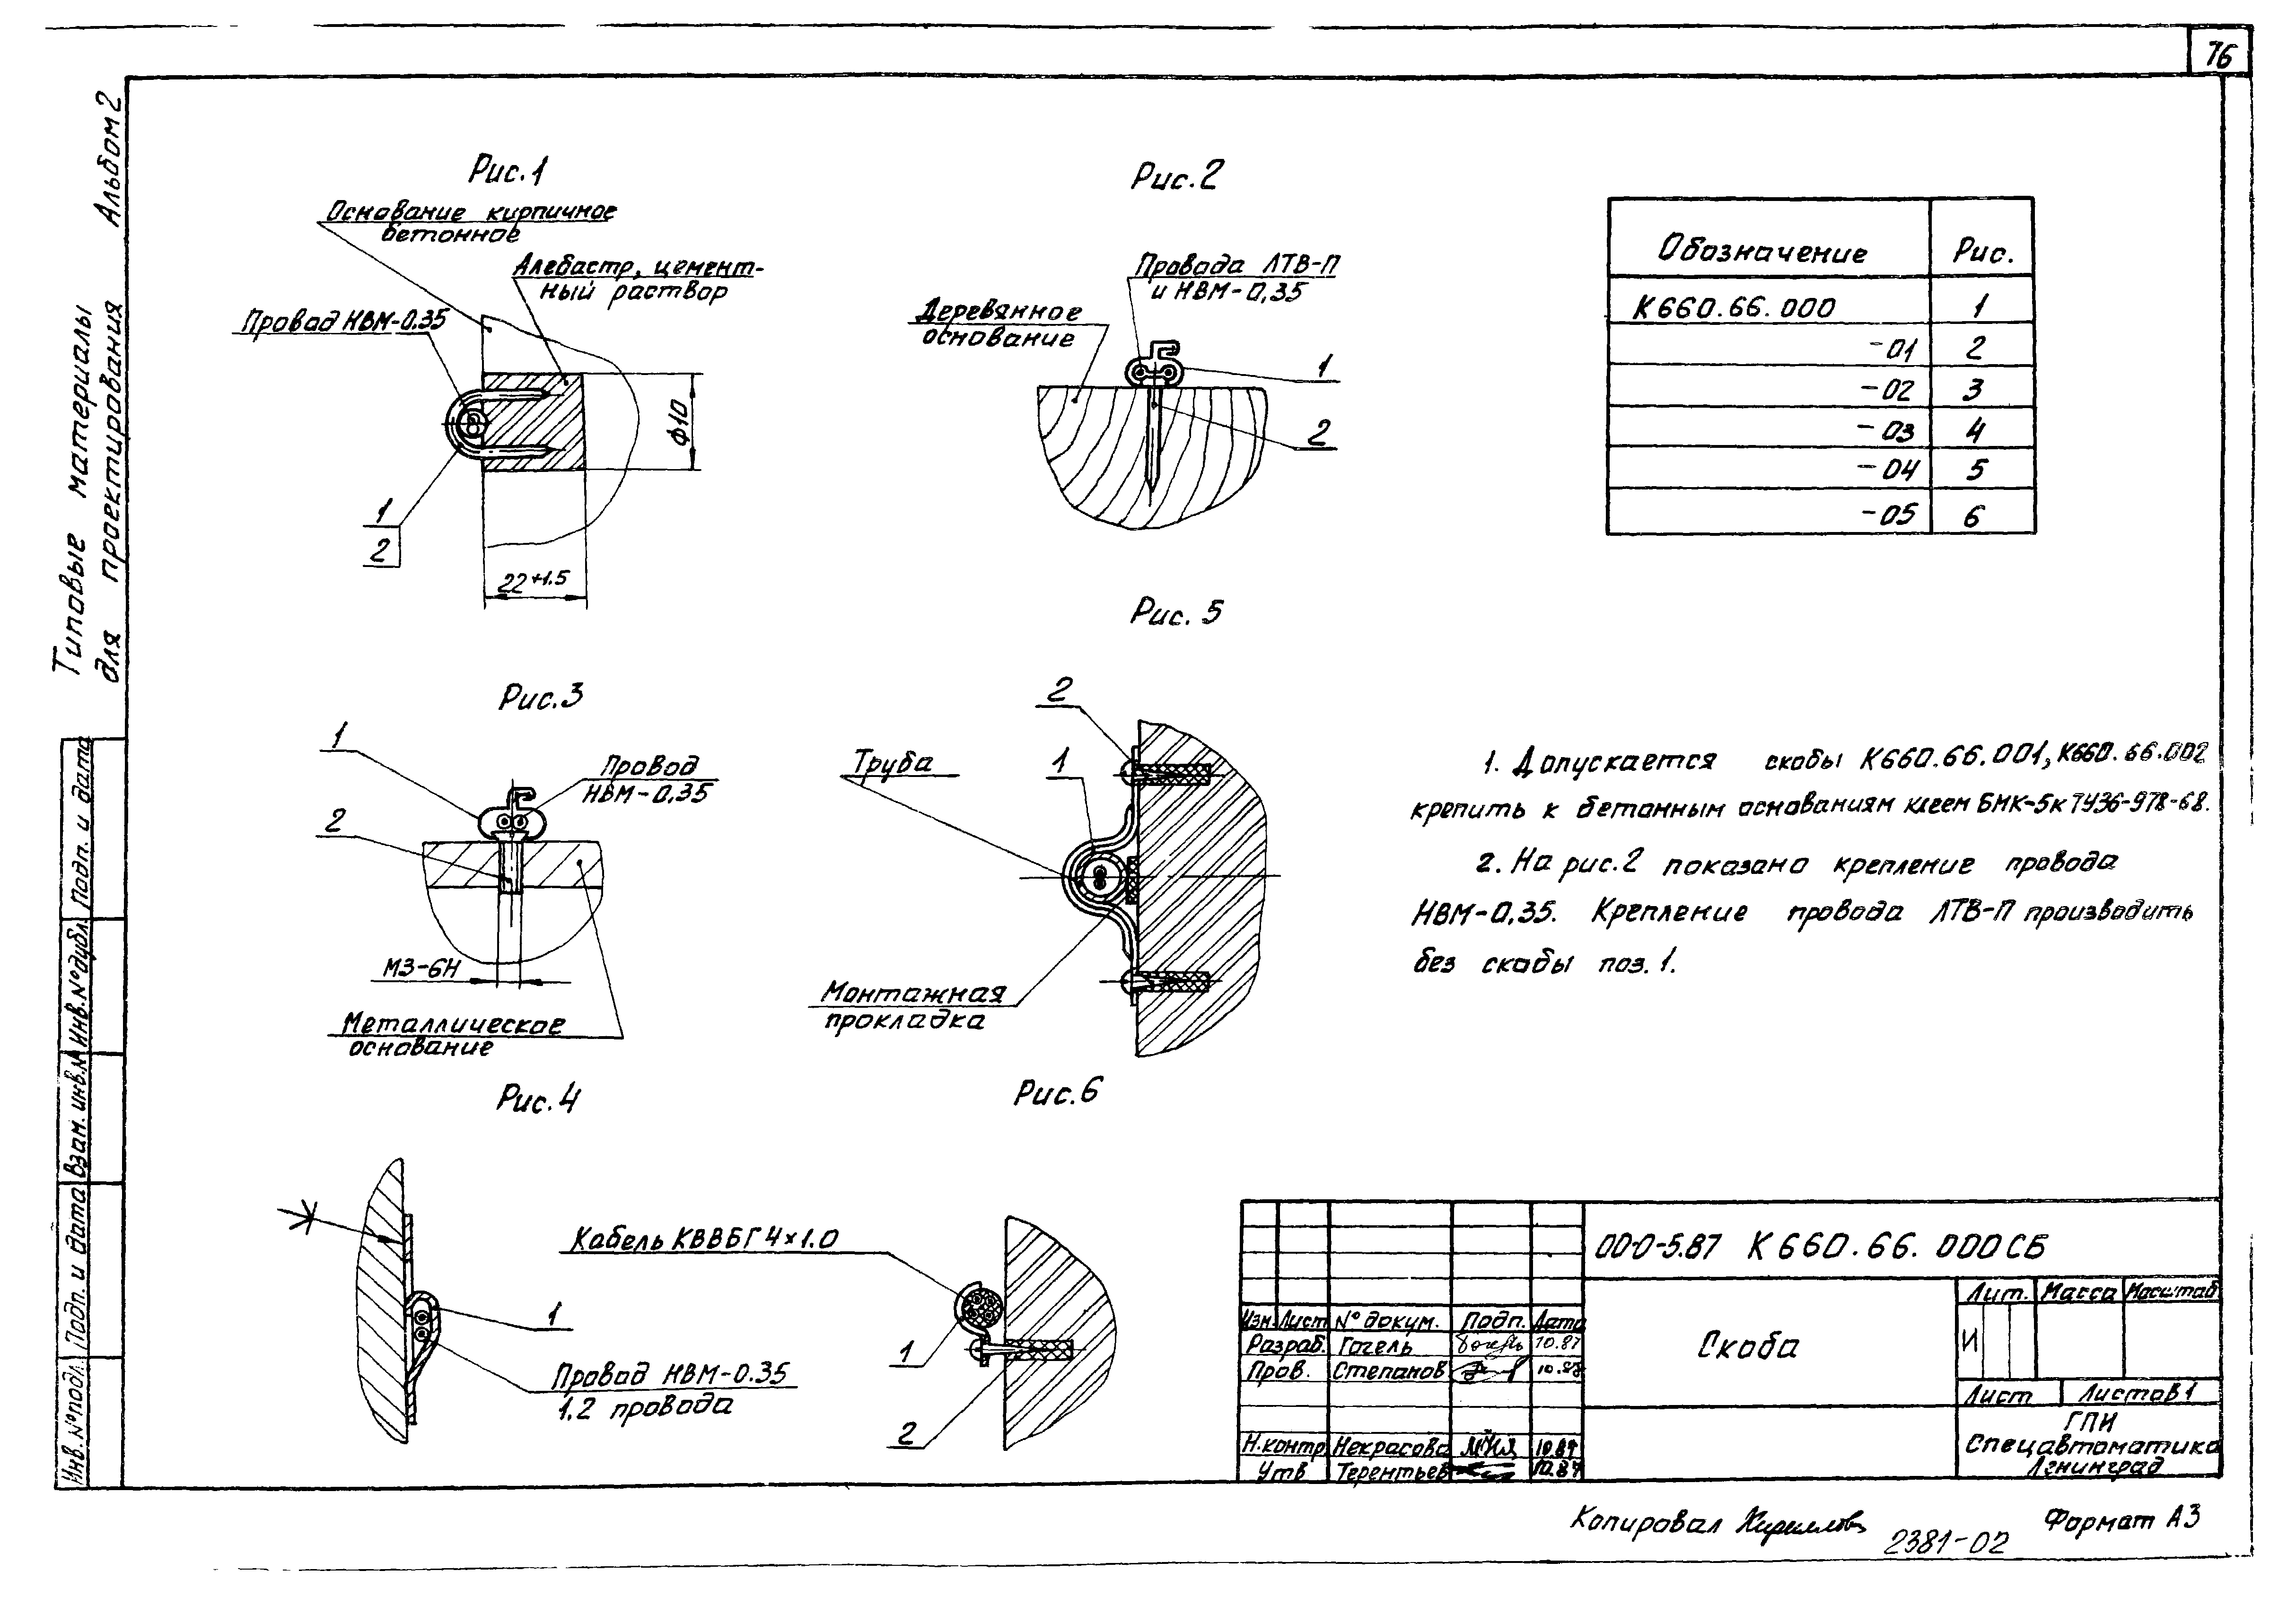 76
Типовые материалы
для проектирования Альбом 2
Рис.1
Основание кирпичное
бетонное
Алебастр, цемент-
ный раствор
Провод НВМ-0.35
1
2
ф10
22+1.5
Рис.2
Провода ЛТВ-П
и НВМ-0,35
Деревянное
основание
1
2
Обозначение Рис.
К660.66.000 1
-01 2
-02 3
-03 4
-04 5
-05 6
Рис.3
1
Провод
НВМ-0,35
2
М3-6Н
Металлическое
основание
Рис. 5
2
Труба
1
Монтажная
прокладка
1. Допускается скобы К660.66.001, К660.66.002
крепить к бетонным основаниям клеем БМК-5к ТУ36-978-68.
2. На рис.2 показано крепление провода
НВМ-0,35. Крепление провода ЛТВ-П производить
без скобы поз.1.
Рис.4
1
Провод НВМ-0.35
1.2 провода
Рис.6
Кабель КВВБГ 4×1.0
1
2
00-0-5.87 К660.66.000СБ
Изм. Лист N° докум. Подп. Дата
Разраб. Гогель 10.87
Пров. Степанов 10.87
Н.контр Некрасова 10.87
Утв Терентьев 10.87
Скоба
Лит. Масса Масштаб
И
Лист Листов 1
ГПИ
Спецавтоматика
Ленинград
Инв. N° подл. Подп. и дата Взам. инв. N Инв. N° дубл. Подп. и дата
Копировал 2381-02 Формат А3